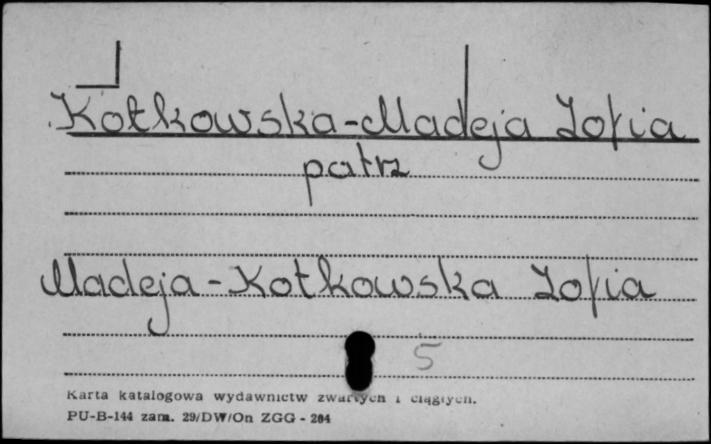 Kotkowska-Madeja Zofia
patrz
Madeja-Kotkowska Zofia
5
Karta katalogowa wydawnictw zwartych i ciągłych.
PU-B-144 zam. 29/DW/On ZGG - 284